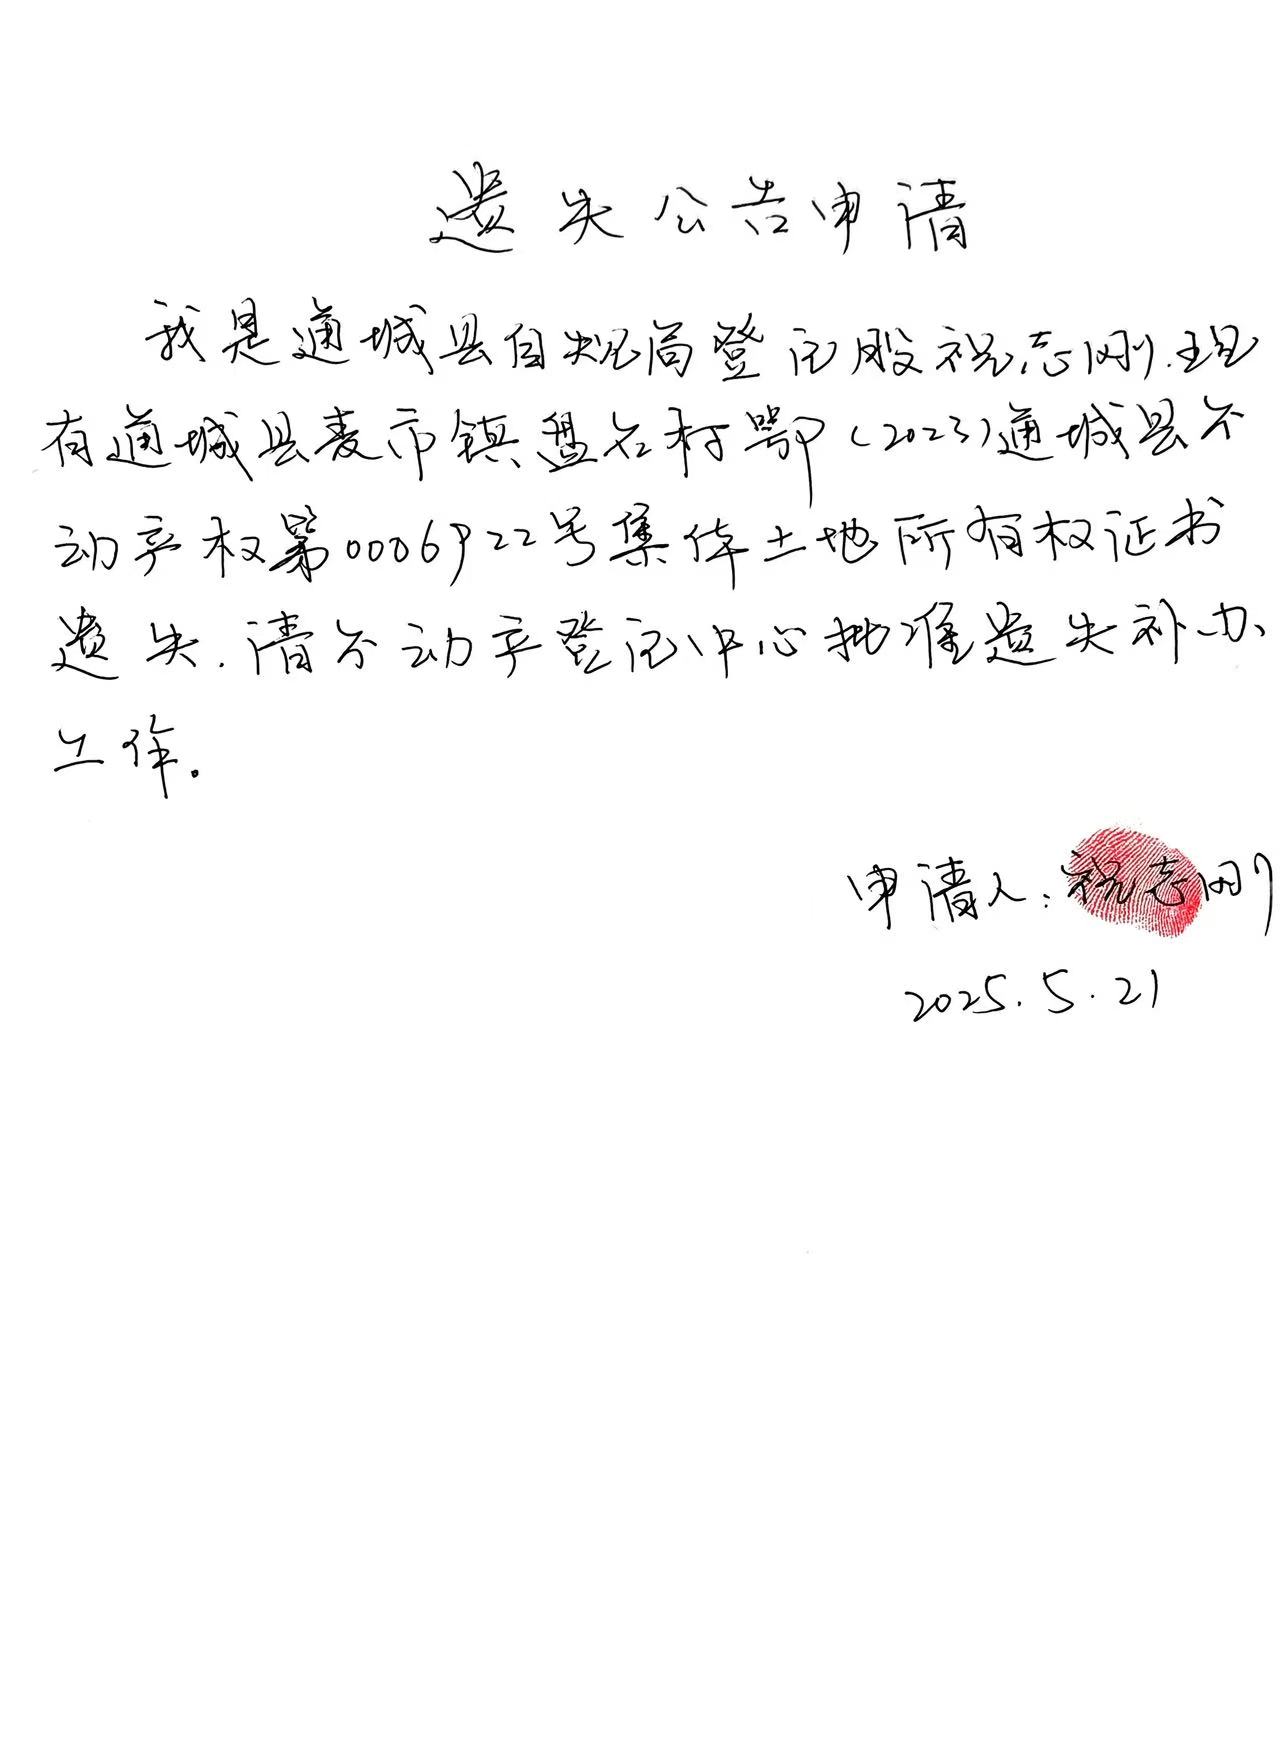 遗失公告申请
我是通城县自规局登记股祝志刚.现
有通城县麦市镇盘石村鄂(2023)通城县不
动产权第0006922号集体土地所有权证书
遗失.请不动产登记中心批准遗失补办
工作。
申请人:祝志刚
2025.5.21